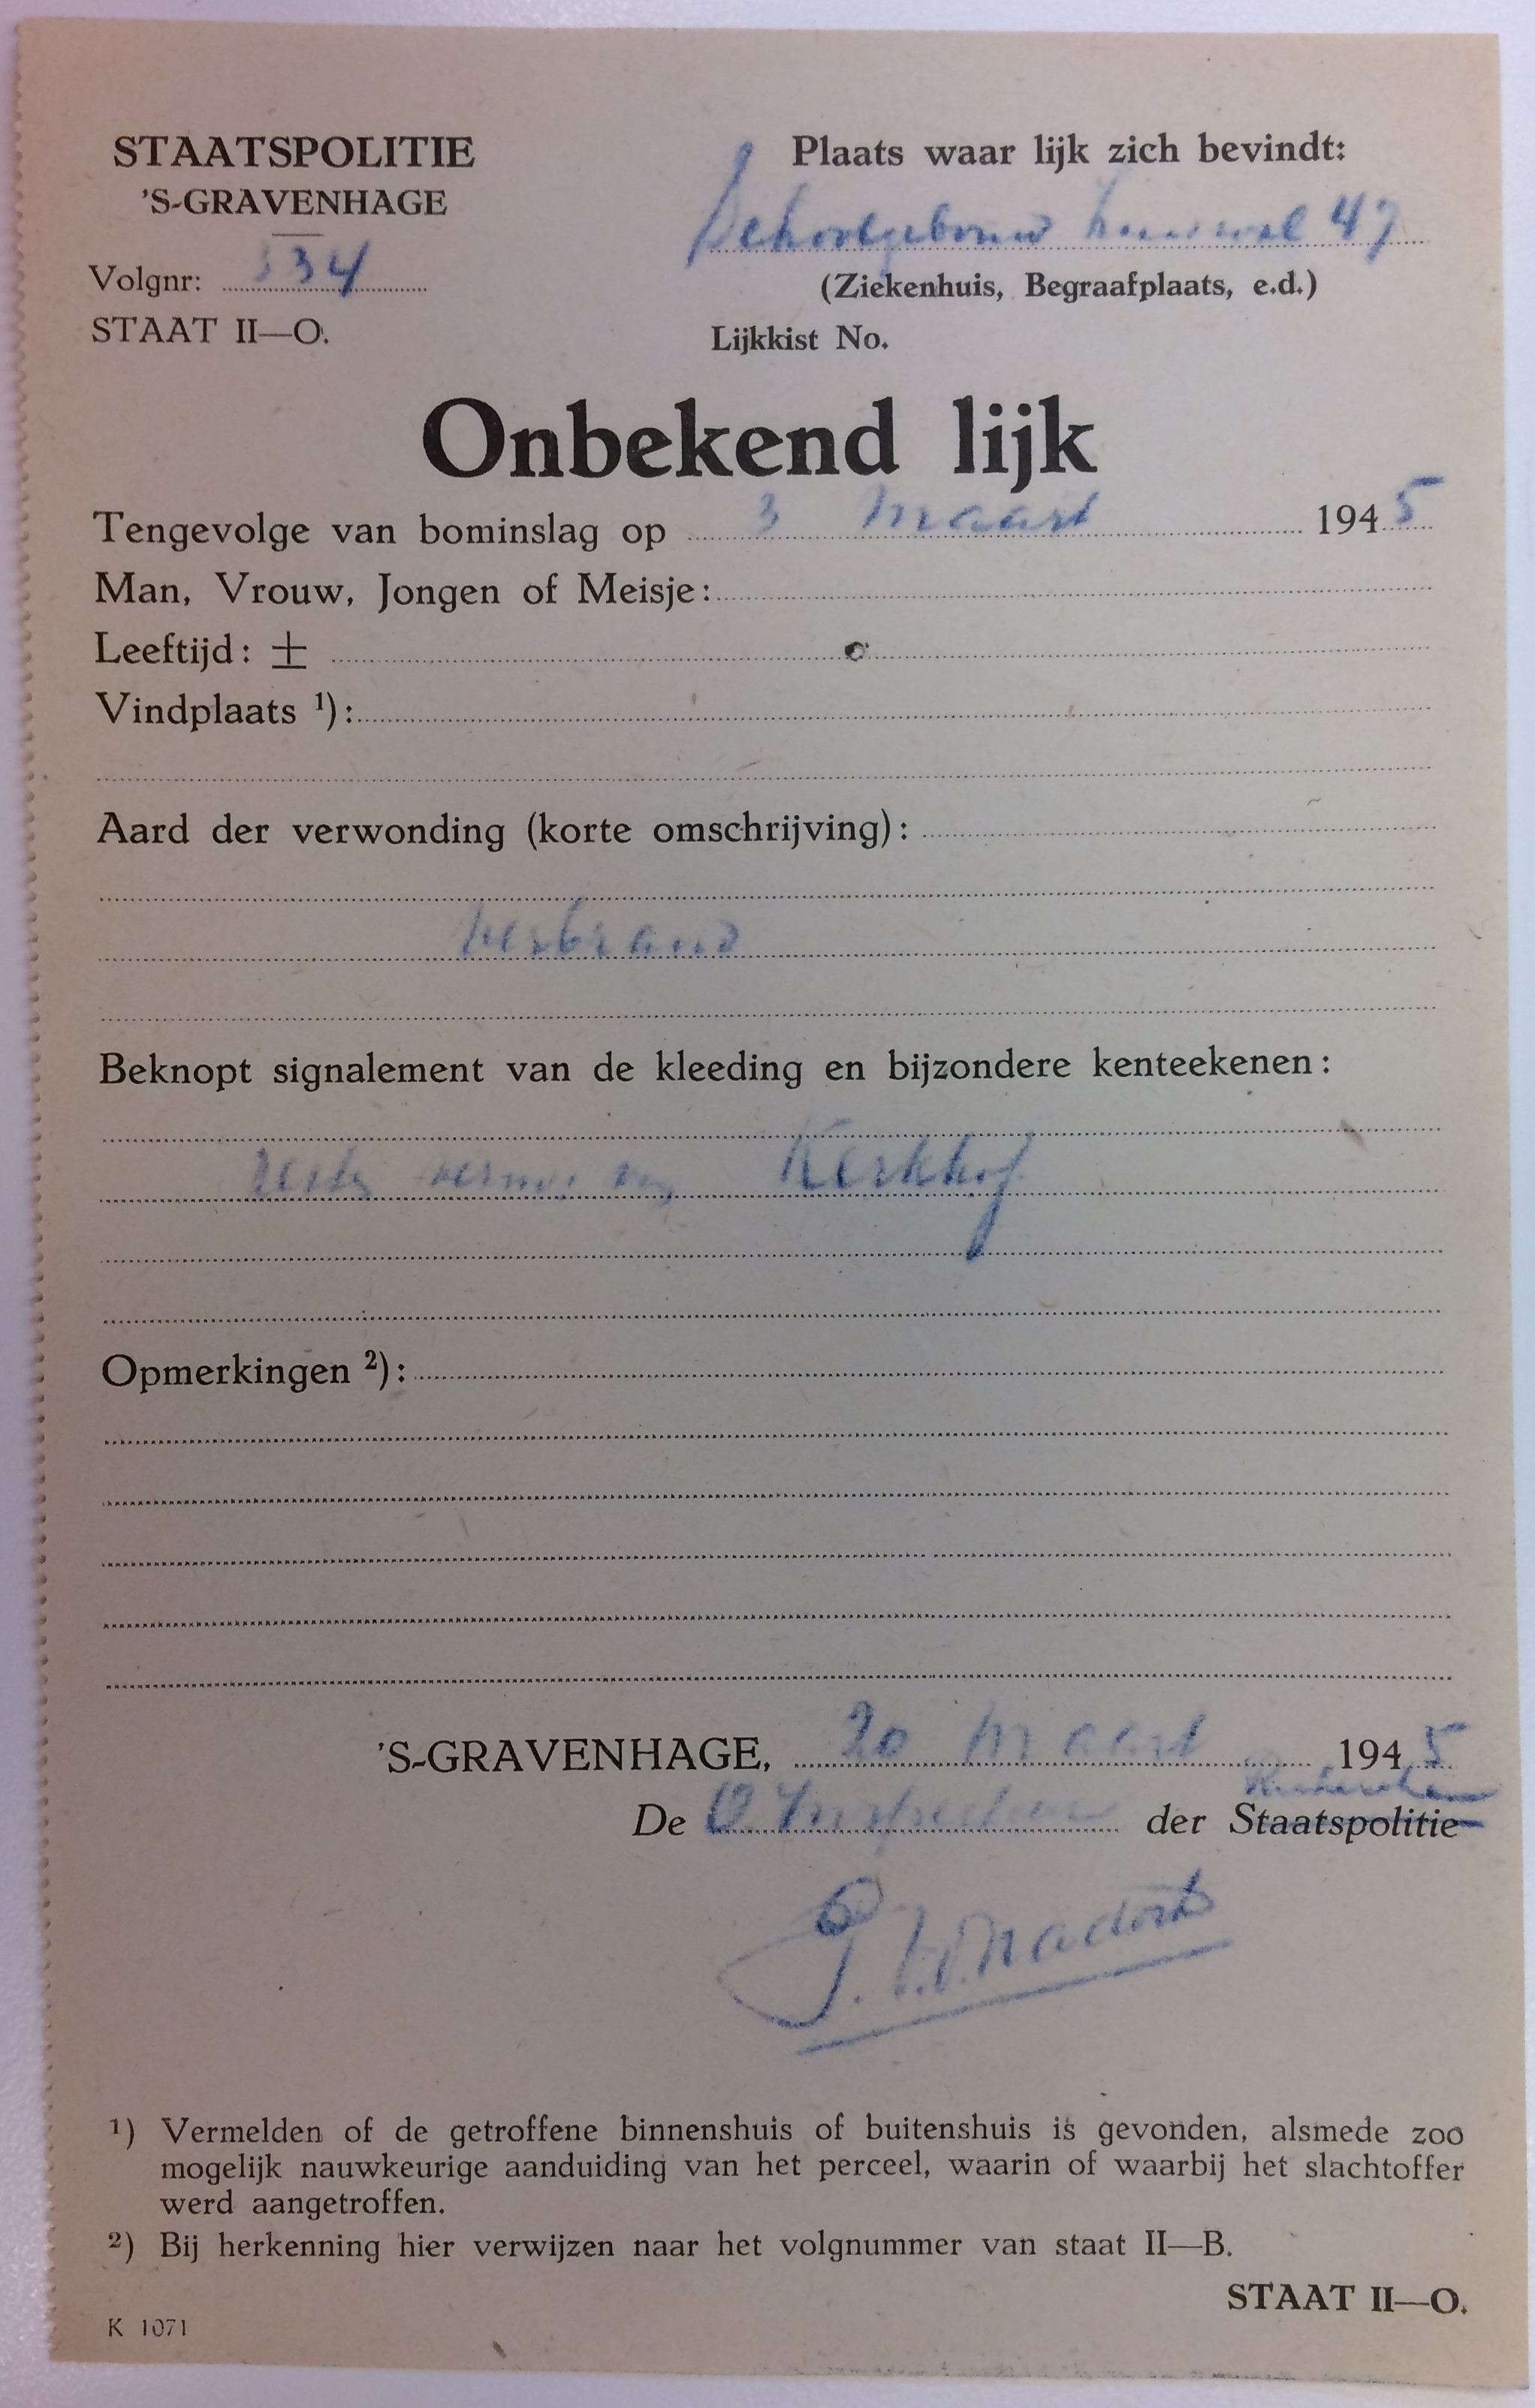 STAATSPOLITIE
'S-GRAVENHAGE
Volgnr: 334
STAAT II—O.
Plaats waar lijk zich bevindt:
Schoolgebouw 47
(Ziekenhuis, Begraafplaats, e.d.)
Lijkkist No.
Onbekend lijk
Tengevolge van bominslag op 3 Maart 1945
Man, Vrouw, Jongen of Meisje:
Leeftijd: ±
Vindplaats ¹):
Aard der verwonding (korte omschrijving):
verbrand
Beknopt signalement van de kleeding en bijzondere kenteekenen:
Kerkhof
Opmerkingen ²):
'S-GRAVENHAGE, 20 Maart 1945
De O. Inspecteur der Staatspolitie
¹) Vermelden of de getroffene binnenshuis of buitenshuis is gevonden, alsmede zoo
mogelijk nauwkeurige aanduiding van het perceel, waarin of waarbij het slachtoffer
werd aangetroffen.
²) Bij herkenning hier verwijzen naar het volgnummer van staat II—B.
STAAT II—O.
K 1071